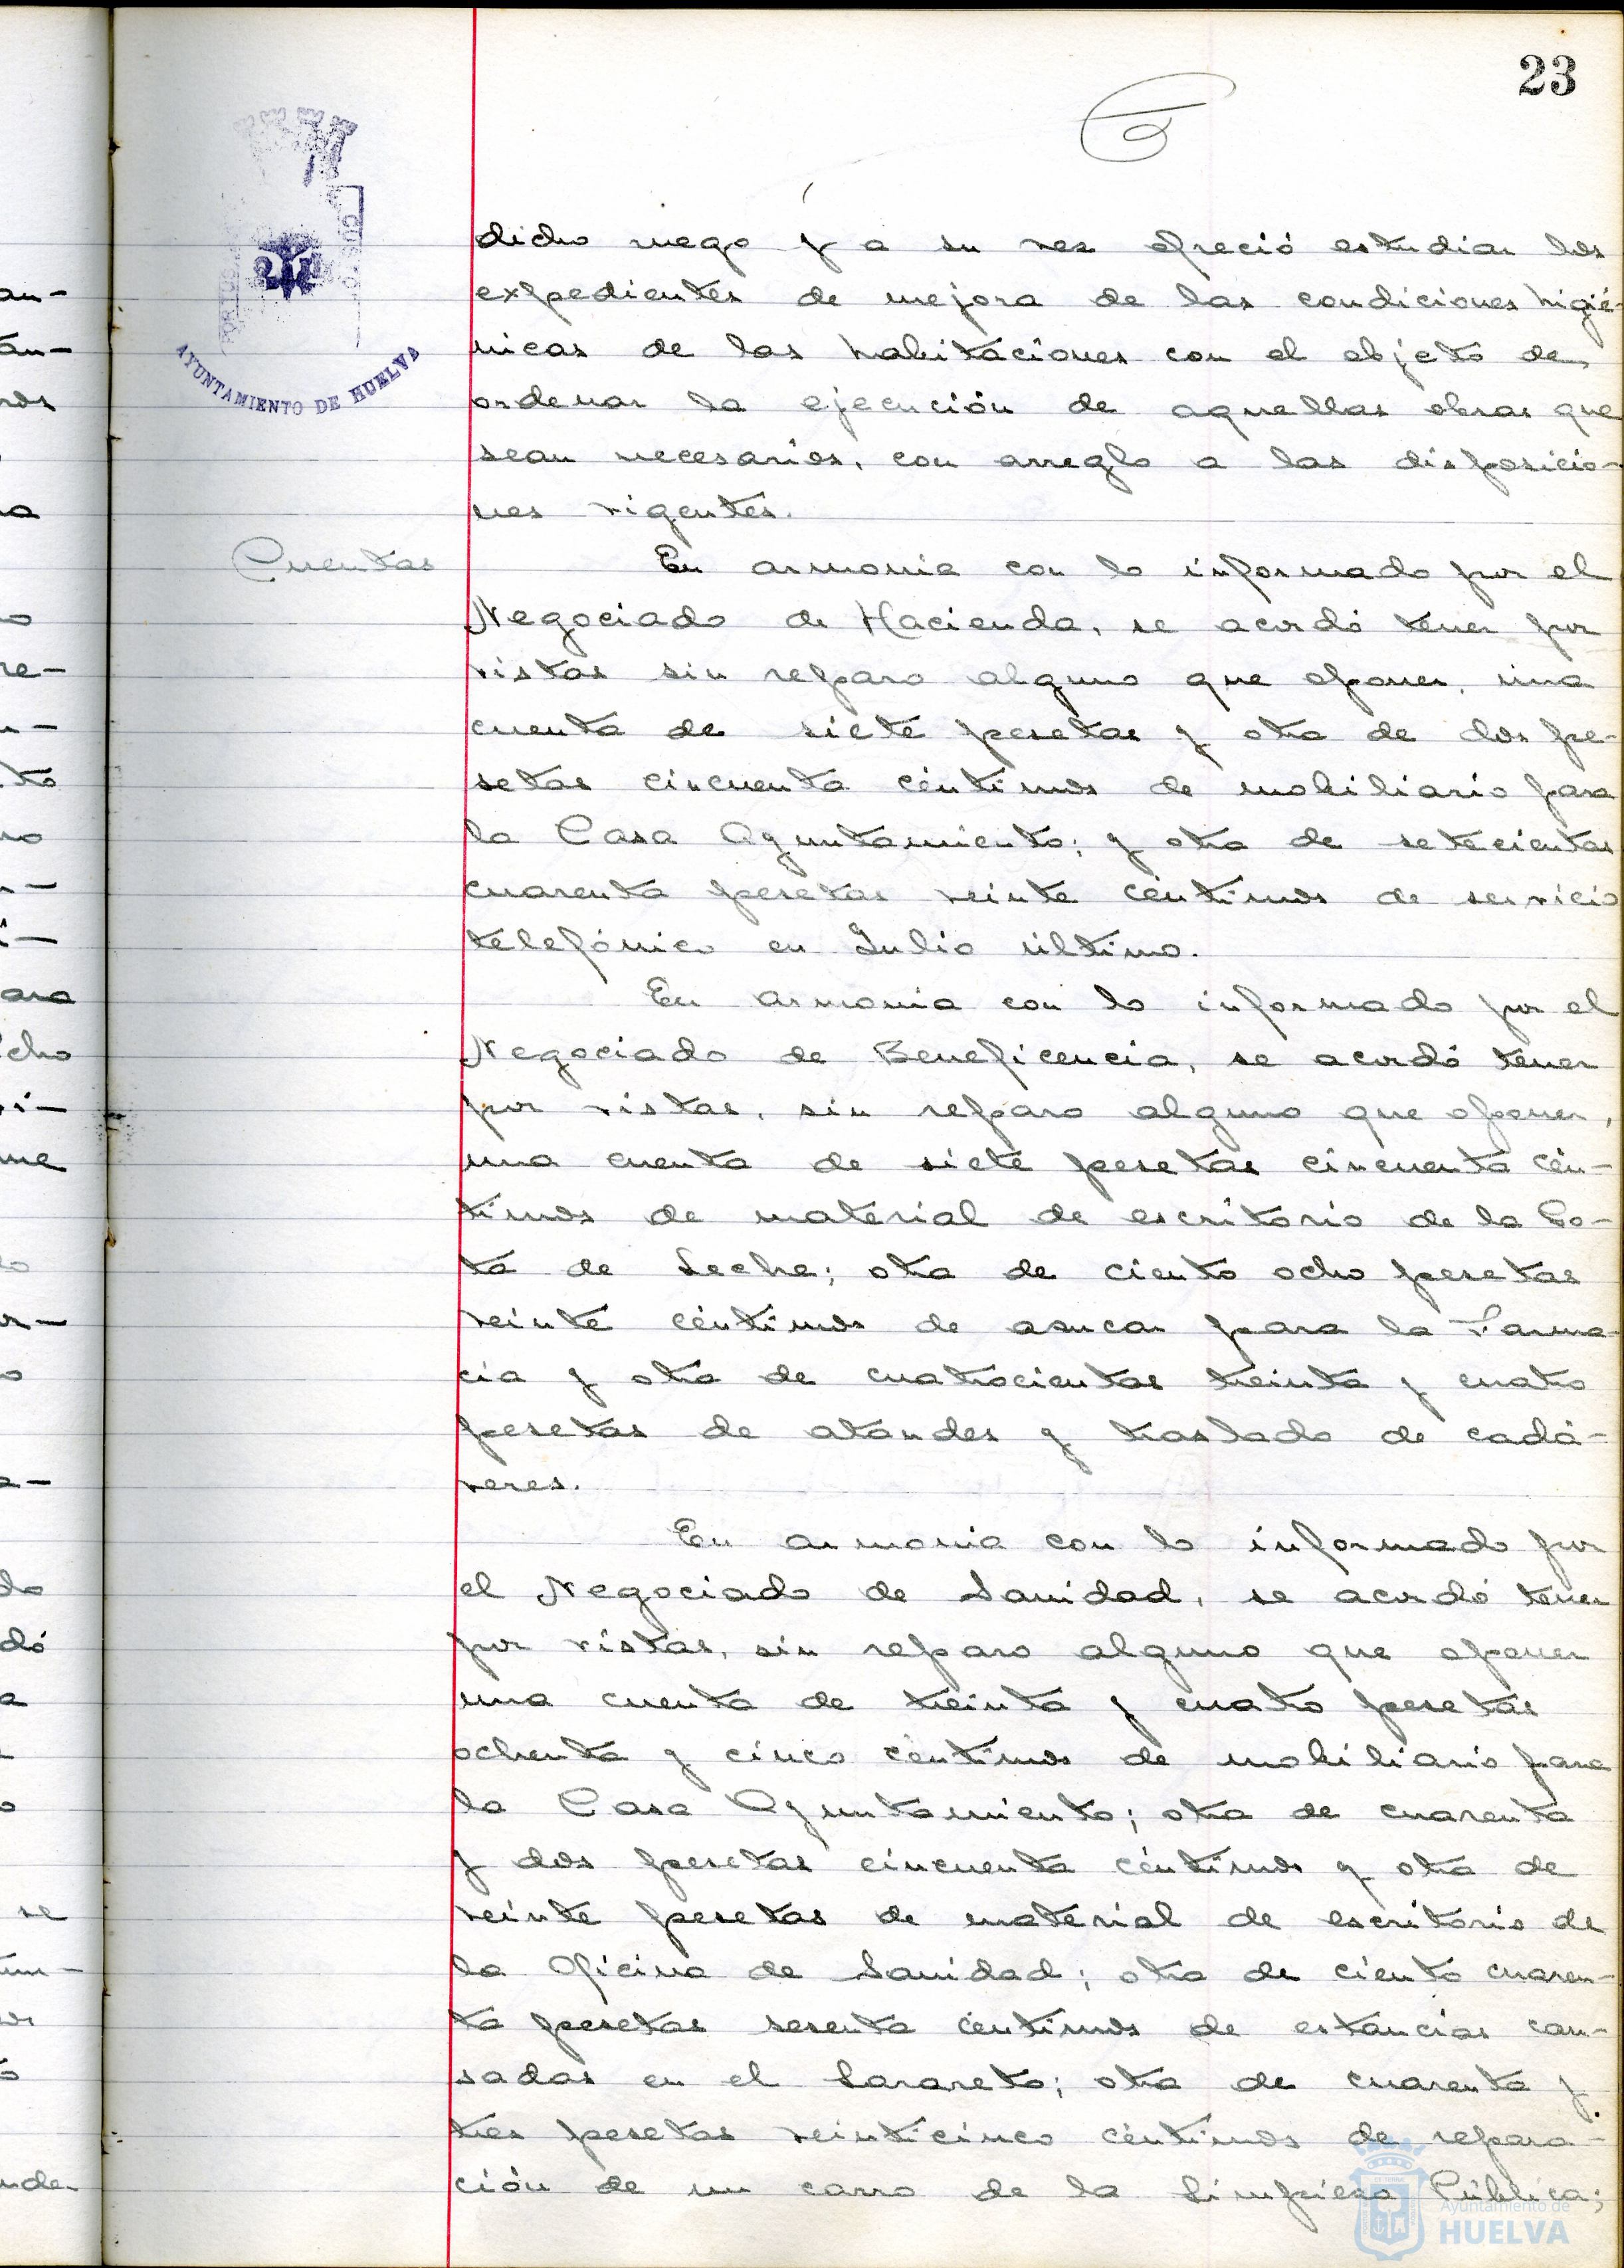 23
AYUNTAMIENTO DE HUELVA
dicho ruego y a su vez ofreció estudiar los
expedientes de mejora de las condiciones higié-
nicas de las habitaciones con el objeto de
ordenar la ejecución de aquellas obras que
sean necesarias, con arreglo a las disposicio-
nes vigentes.
Cuentas
En armonia con lo informado por el
Negociado de Hacienda, se acordó tener por
vistas sin reparo alguno que oponer, una
cuenta de siete pesetas y otra de dos pe-
setas cincuenta céntimos de mobiliario para
la Casa Ayuntamiento; y otra de setecientas
cuarenta pesetas veinte céntimos de servicio
telefónico en Julio último.
En armonia con lo informado por el
Negociado de Beneficencia, se acordó tener
por vistas, sin reparo alguno que oponer,
una cuenta de siete pesetas cincuenta cén-
timos de material de escritorio de la Go-
ta de Leche; otra de ciento ocho pesetas
veinte céntimos de azucar para la Farma-
cia y otra de cuatrocientas treinta y cuatro
pesetas de ataudes y traslado de cadá-
veres.
En armonia con lo informado por
el Negociado de Sanidad, se acordó tener
por vistas, sin reparo alguno que oponer
una cuenta de treinta y cuatro pesetas
ochenta y cinco céntimos de mobiliario para
la Casa Ayuntamiento; otra de cuarenta
y dos pesetas cincuenta céntimos y otra de
veinte pesetas de material de escritorio de
la Oficina de Sanidad; otra de ciento cuaren-
ta pesetas sesenta céntimos de estancias cau-
sadas en el Lazareto; otra de cuarenta y
tres pesetas veinticinco céntimos de repara-
ción de un carro de la Limpieza Pública;
Ayuntamiento de
HUELVA